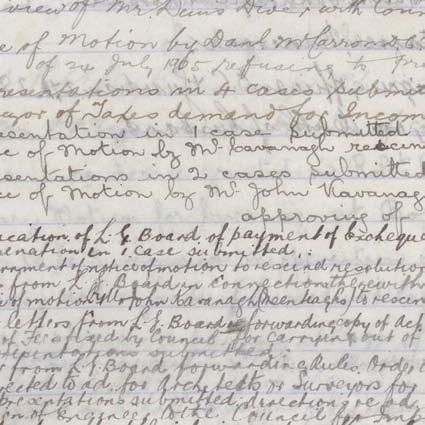 view of Mr. Duns Dive
e of Motion by Danl McCarron D.C
of 24 July 1905 refusing to
resentations in 4 cases submit
eyor of Taxes demand for Incom
esentation in 1 case submitted
ce of Motion by Mr Kavanagh rescin
esentations in 2 cases submitted
ce of Motion by Mr John Kavanag
approving of
ication of L. G. Board of payment of Exchequ
sentation in 1 case submitted.
ernment of notice of motion to rescind resolution
from L. G. Board in connection therewith
of motion by Mr John Kavanagh to rescin
letters from L. G. Board forwarding copy of
of by Council for carrying out of
submitted.
from L. G. Board forwarding Rules. Order
ected to ad. for Architects or Surveyors for
resentations submitted. direction re ad
on of Engineer to the Council for